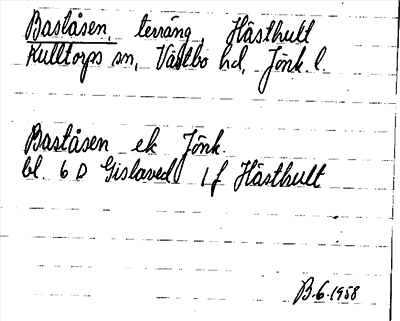 Baståsen, terräng, Hästhult
Kulltorps sn, Västbo hd, Jönk. l.
Baståsen ek Jönk.
bl. 6 D Gislaved 1 f Hästhult
B. 6. 1958